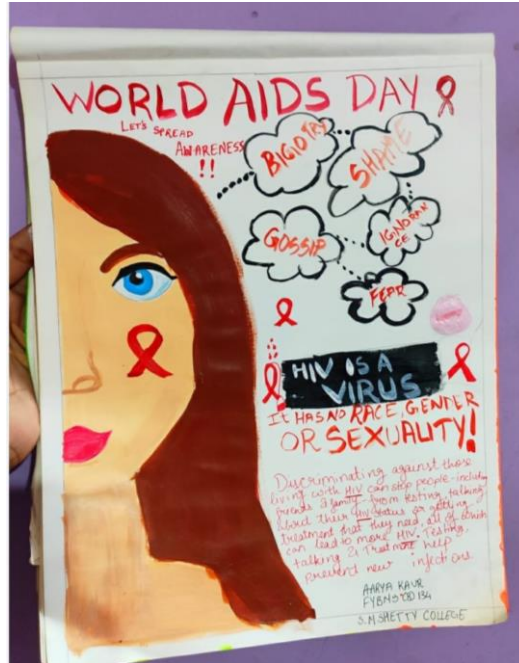 WORLD AIDS DAY
LET'S SPREAD
AWARENESS
!!
BIGIOTRY
SHAME
GOSSIP
IGINORAN
CE
FEAR
HIV IS A
VIRUS
IT HAS NO RACE, GENDER
OR SEXUALITY!
Discriminating against those
living with HIV can stop people-including
friends & family-from testing, talking
about their HIV status or getting
treatment that they need, all of which
can lead to more HIV. Testing,
talking & Treatment help
prevent new infections.
AARYA KAUR
S.M SHETTY COLLEGE